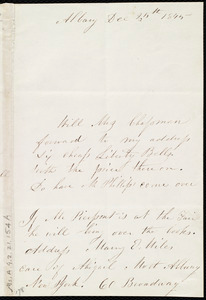 Albany Dec 24th 1845
Will Mrs Chapman
forward to my address
Six cheap Liberty Bells
with the price thereon.
Do have Mr Phillips come over
If Mr Pierpont is at the
he will bring over the books.
Address Mary E. Miles
care of Abigail Mott Albany
New York. 61 Broadway